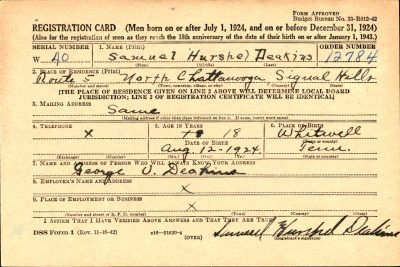 FORM APPROVED
Budget Bureau No. 33-R012-42
REGISTRATION CARD—(Men born on or after July 1, 1924, and on or before December 31, 1924)
(Also for the registration of men as they reach the 18th anniversary of the date of their birth on or after January 1, 1943.)
SERIAL NUMBER 1. NAME (Print) ORDER NUMBER
W 40 Samuel Hurshel Deakins 12784
(First) (Middle) (Last)
2. PLACE OF RESIDENCE (Print)
Route 5 North Chattanooga Signal Hills
(Number and street) (Town, township, village, or city) (County) (State)
[THE PLACE OF RESIDENCE GIVEN ON LINE 2 ABOVE WILL DETERMINE LOCAL BOARD
JURISDICTION; LINE 2 OF REGISTRATION CERTIFICATE WILL BE IDENTICAL]
3. MAILING ADDRESS
Same
[Mailing address if other than place indicated on line 2. If same, insert word same]
4. TELEPHONE 5. AGE IN YEARS 6. PLACE OF BIRTH
X 18 Whitwell
DATE OF BIRTH (Town or county)
Aug. 12-1924 Tenn.
(Exchange) (Number) (Mo.) (Day) (Yr.) (State or country)
7. NAME AND ADDRESS OF PERSON WHO WILL ALWAYS KNOW YOUR ADDRESS
George Deakins
8. EMPLOYER'S NAME AND ADDRESS
X
9. PLACE OF EMPLOYMENT OR BUSINESS
X
(Number and street or R. F. D. number) (Town) (County) (State)
I AFFIRM THAT I HAVE VERIFIED ABOVE ANSWERS AND THAT THEY ARE TRUE.
DSS Form 1 (Rev. 11-16-42) (OVER) Samuel Hurshel Deakins
(Registrant's signature)